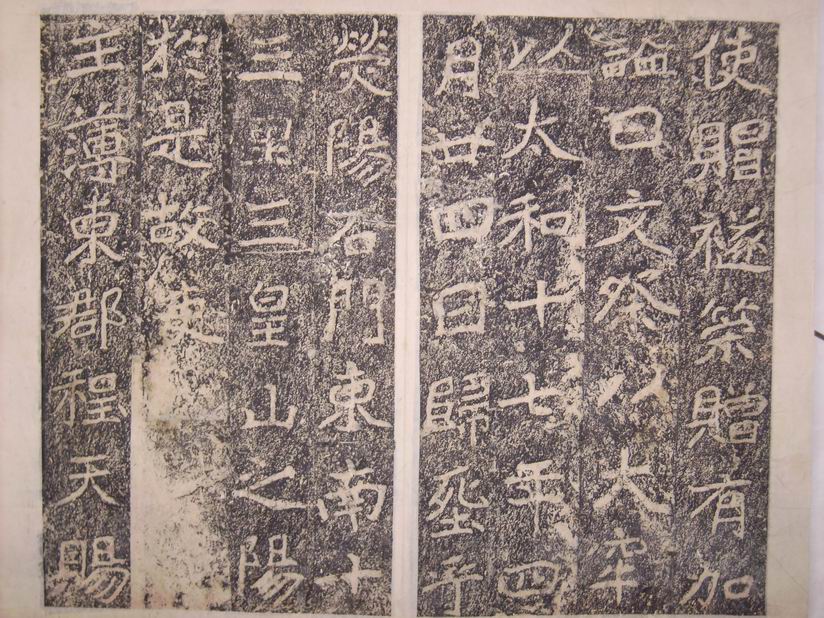 使賵襚策贈有加
謚曰文祭以太牢
以太和十七年四
月廿四日歸塟乎
熒陽石門東南十
三里三皇山之陽
於是故吏
主薄東郡程天賜